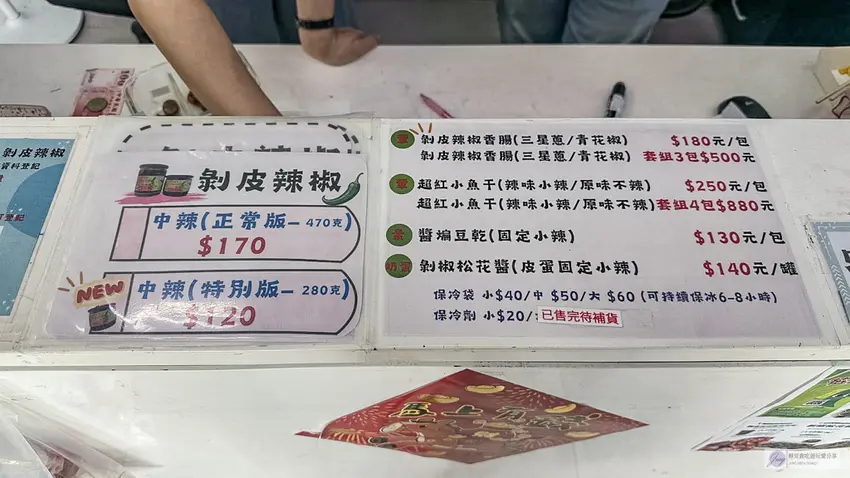 剝皮辣椒
資料登記
剝皮辣椒
中辣(正常版-470克)
$170
NEW
中辣(特別版-280克)
$120
葷 剝皮辣椒香腸(三星蔥/青花椒) $180元/包
剝皮辣椒香腸(三星蔥/青花椒) 套組3包$500元
葷 超紅小魚干(辣味小辣/原味不辣) $250元/包
超紅小魚干(辣味小辣/原味不辣)套組4包$880元
醬煸豆乾(固定小辣) $130元/包
奶蛋 剝椒松花醬(皮蛋固定小辣) $140元/罐
保冷袋 小$40/中 $50/大 $60 (可持續保冰6-8小時)
保冷劑 小$20/
已售完待補貨